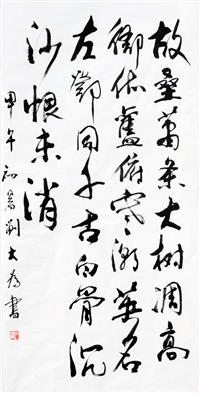 故壘蕭条大樹凋高
衙依舊俯寒潮英名
左鄧同千古白骨沉
沙恨未消
甲午劉大為書